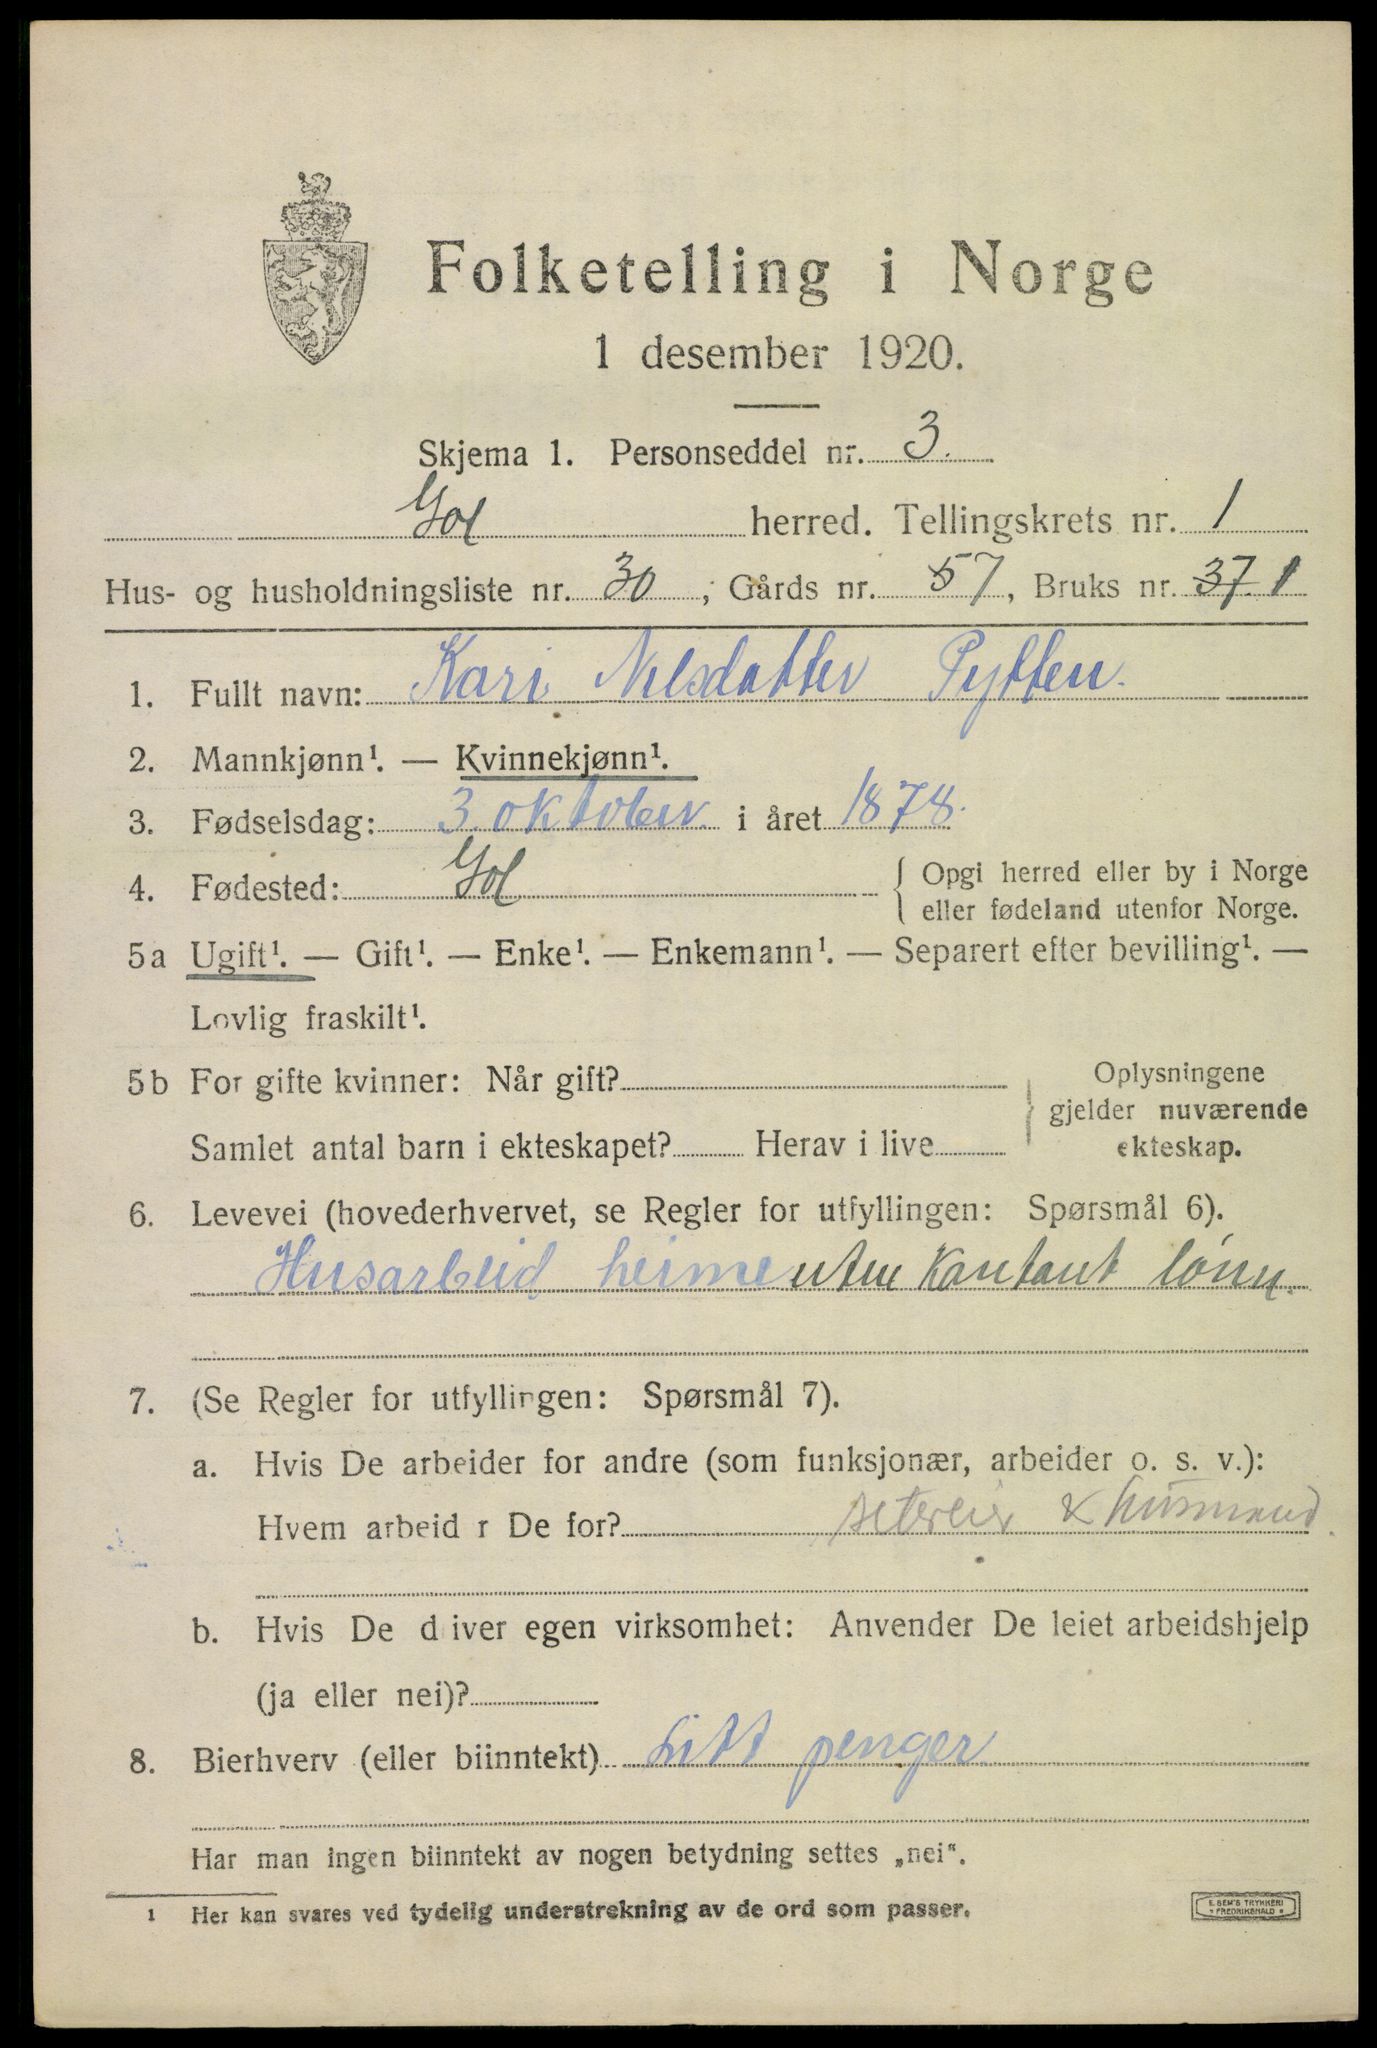 Folketelling i Norge
1 desember 1920.
Skjema 1. Personseddel nr. 3.
Gol herred. Tellingskrets nr. 1
Hus- og husholdningsliste nr. 30; Gårds nr. 57, Bruks nr. 37 1
1. Fullt navn: Kari Nilsdatter Pytten.
2. Mannkjønn¹. — Kvinnekjønn¹.
3. Fødselsdag: 3. oktober i året 1878.
4. Fødested: Gol { Opgi herred eller by i Norge
eller fødeland utenfor Norge.
5a Ugift¹. — Gift¹. — Enke¹. — Enkemann¹. — Separert efter bevilling¹. —
Lovlig fraskilt¹.
5b For gifte kvinner: Når gift? } Oplysningene
gjelder nuværende
Samlet antal barn i ekteskapet? Herav i live ekteskap.
6. Levevei (hovederhvervet, se Regler for utfyllingen: Spørsmål 6).
Husarbeid heime uten kontant lønn.
7. (Se Regler for utfyllingen: Spørsmål 7).
a. Hvis De arbeider for andre (som funksjonær, arbeider o. s. v.):
Hvem arbeid r De for? & husmand.
b. Hvis De d iver egen virksomhet: Anvender De leiet arbeidshjelp
(ja eller nei)?
8. Bierhverv (eller biinntekt) Litt penger
Har man ingen biinntekt av nogen betydning settes „nei“.
1 Her kan svares ved tydelig understrekning av de ord som passer.
E. SEM'S TRYKKERI
FREDRIKSHALD